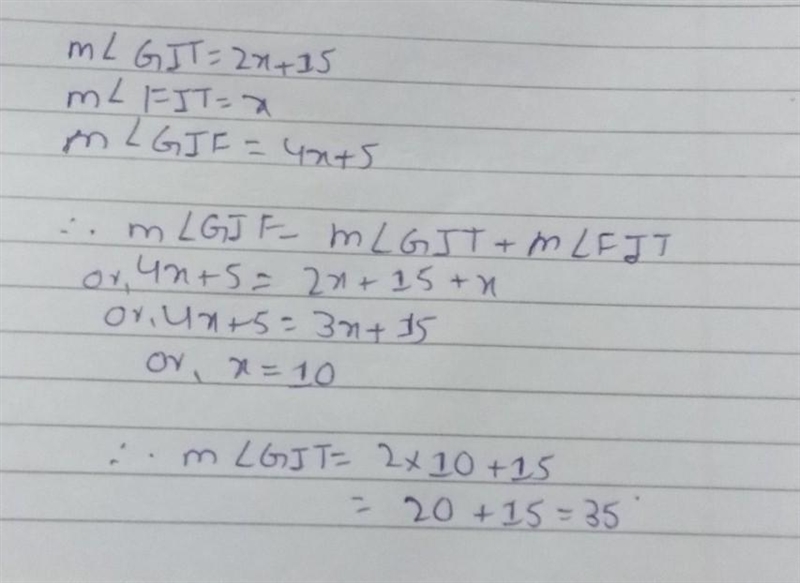 m∠GJT=2x+15
m∠FJT=x
m∠GJF=4x+5
∴ m∠GJF= m∠GJT+m∠FJT
or, 4x+5= 2x+15+x
or, 4x+5=3x+15
or, x=10
∴ m∠GJT= 2×10+15
= 20+15=35